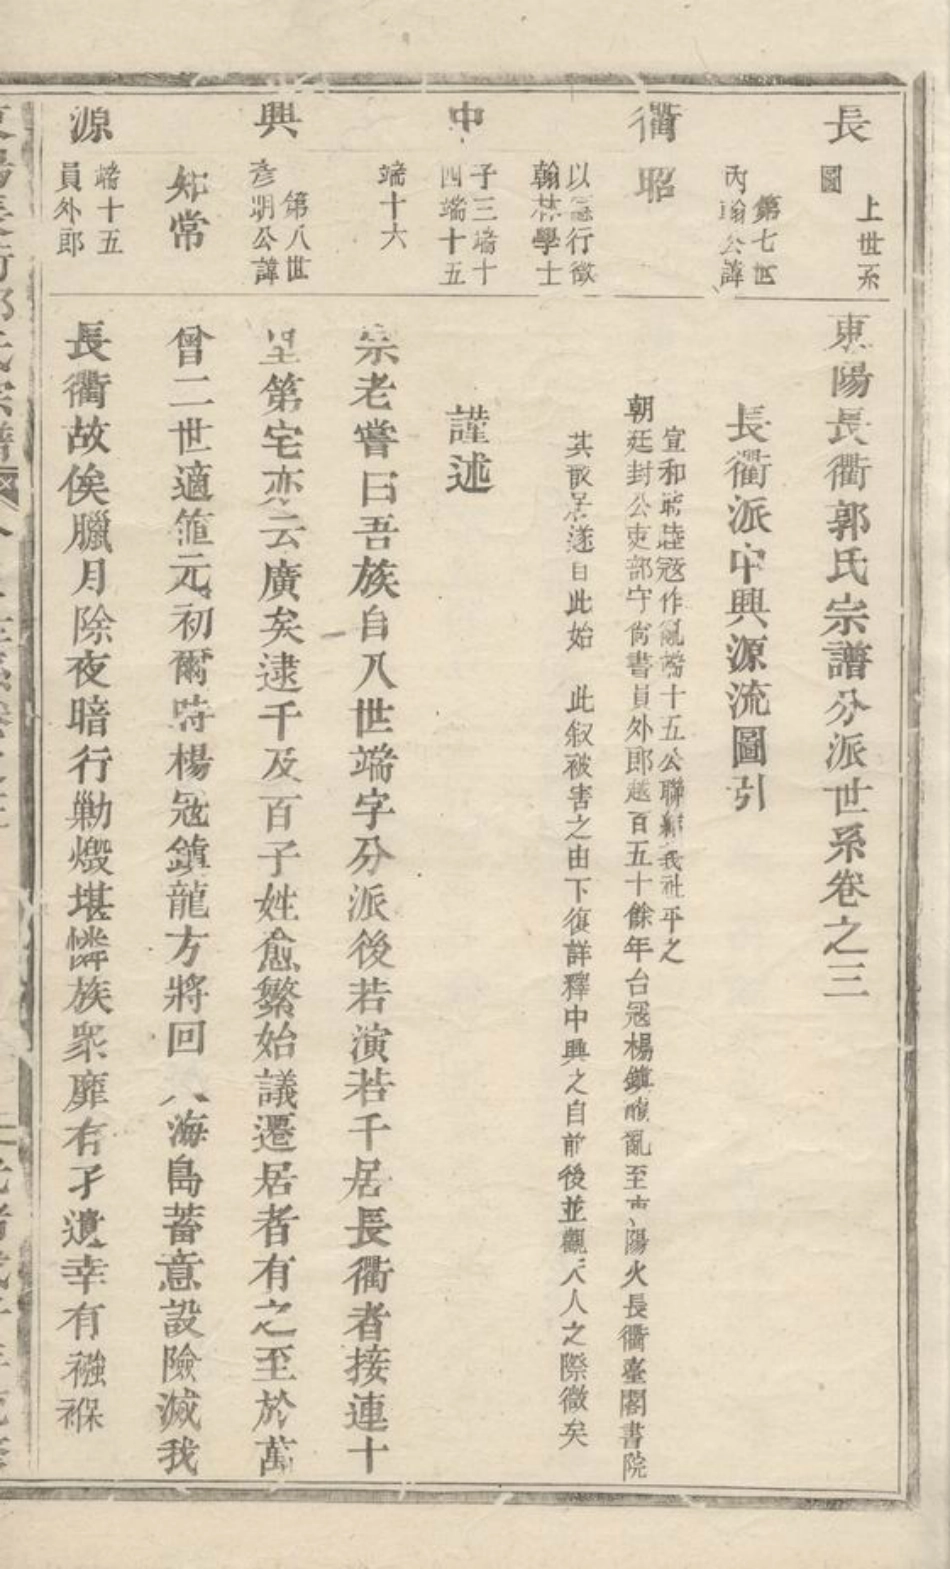 長
上世系
圖
第七世
內翰公諱
衢
昭
以宣行徵
翰林學士
中
子三端十
四端十五
端十六
興
第八世
彥明公諱
知常
源
端十五
員外郎
東陽長衢郭氏宗譜分派世系卷之三
長衢派中興源流圖引
宣和睦寇作亂端十五公聯義社平之
朝廷封公吏部守尚書員外郎越百五十餘年台寇楊鎮龍亂至東陽火長衢臺閣書院
其散居遂自此始 此敘被害之由下復詳釋中興之自前後並觀天人之際微矣
謹述
宗老嘗曰吾族自八世端字分派後若演若千居長衢者接連十
里第宅亦云廣矣逮千及百子姓愈繁始議遷居者有之至於萬
曾二世適值元初爾時楊寇鎮龍方將回入海島蓄意設險滅我
長衢故俟臘月除夜暗行勦燬堪憐族眾靡有孑遺幸有襁褓